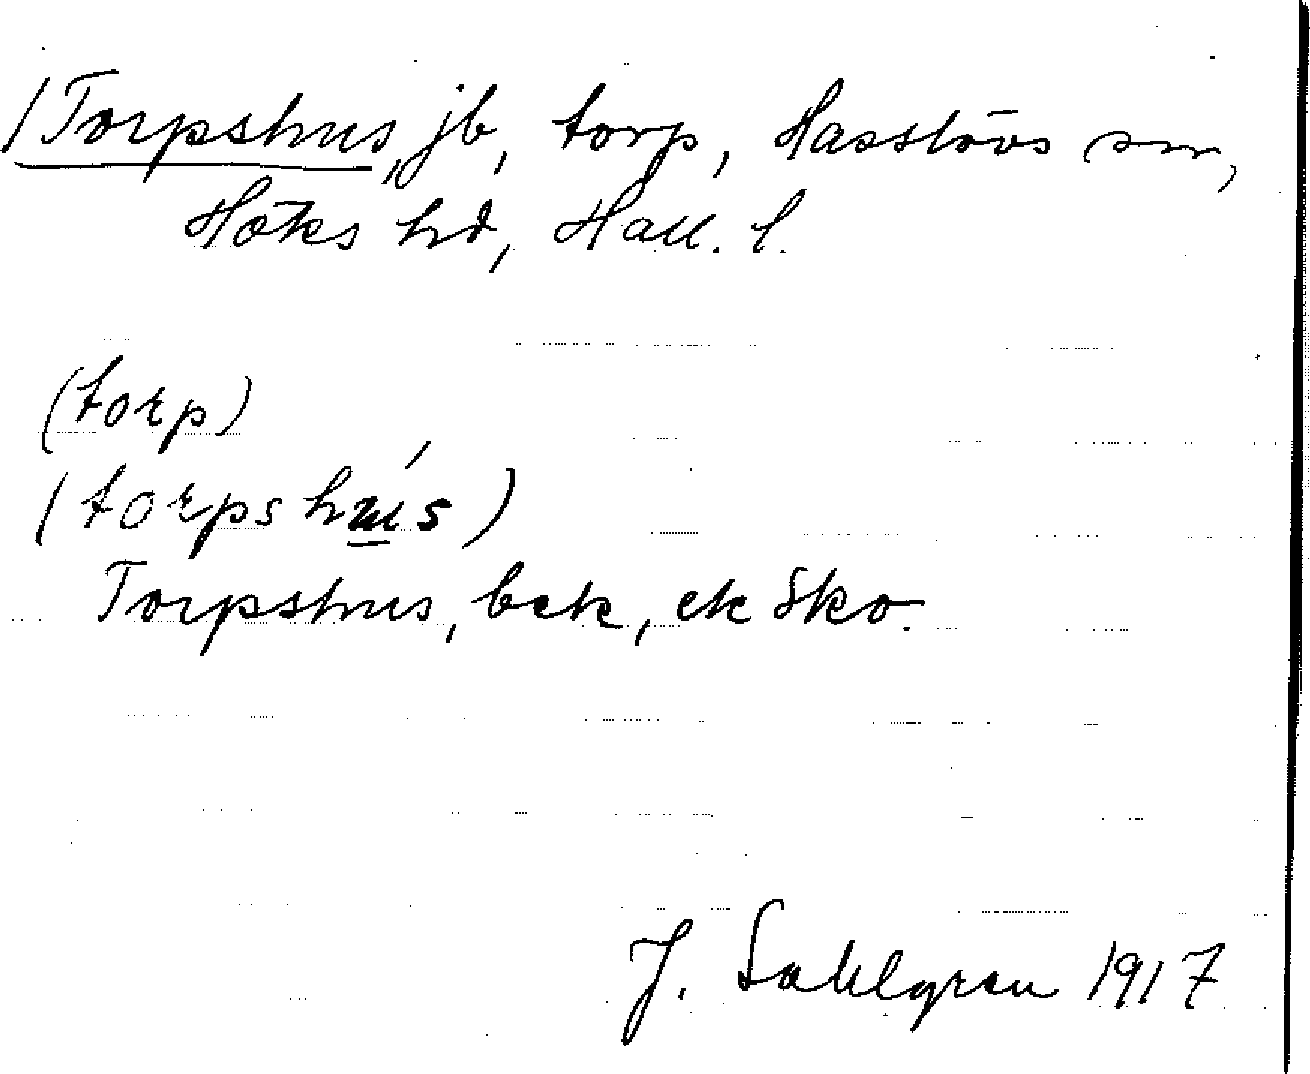 /Torpshus, jb, torp, Hasslövs sn,
Höks hd, Hall. l.
(torp)
(torpshús)
Torpshus, bek, ek Sko.
J. Sahlgren 1917